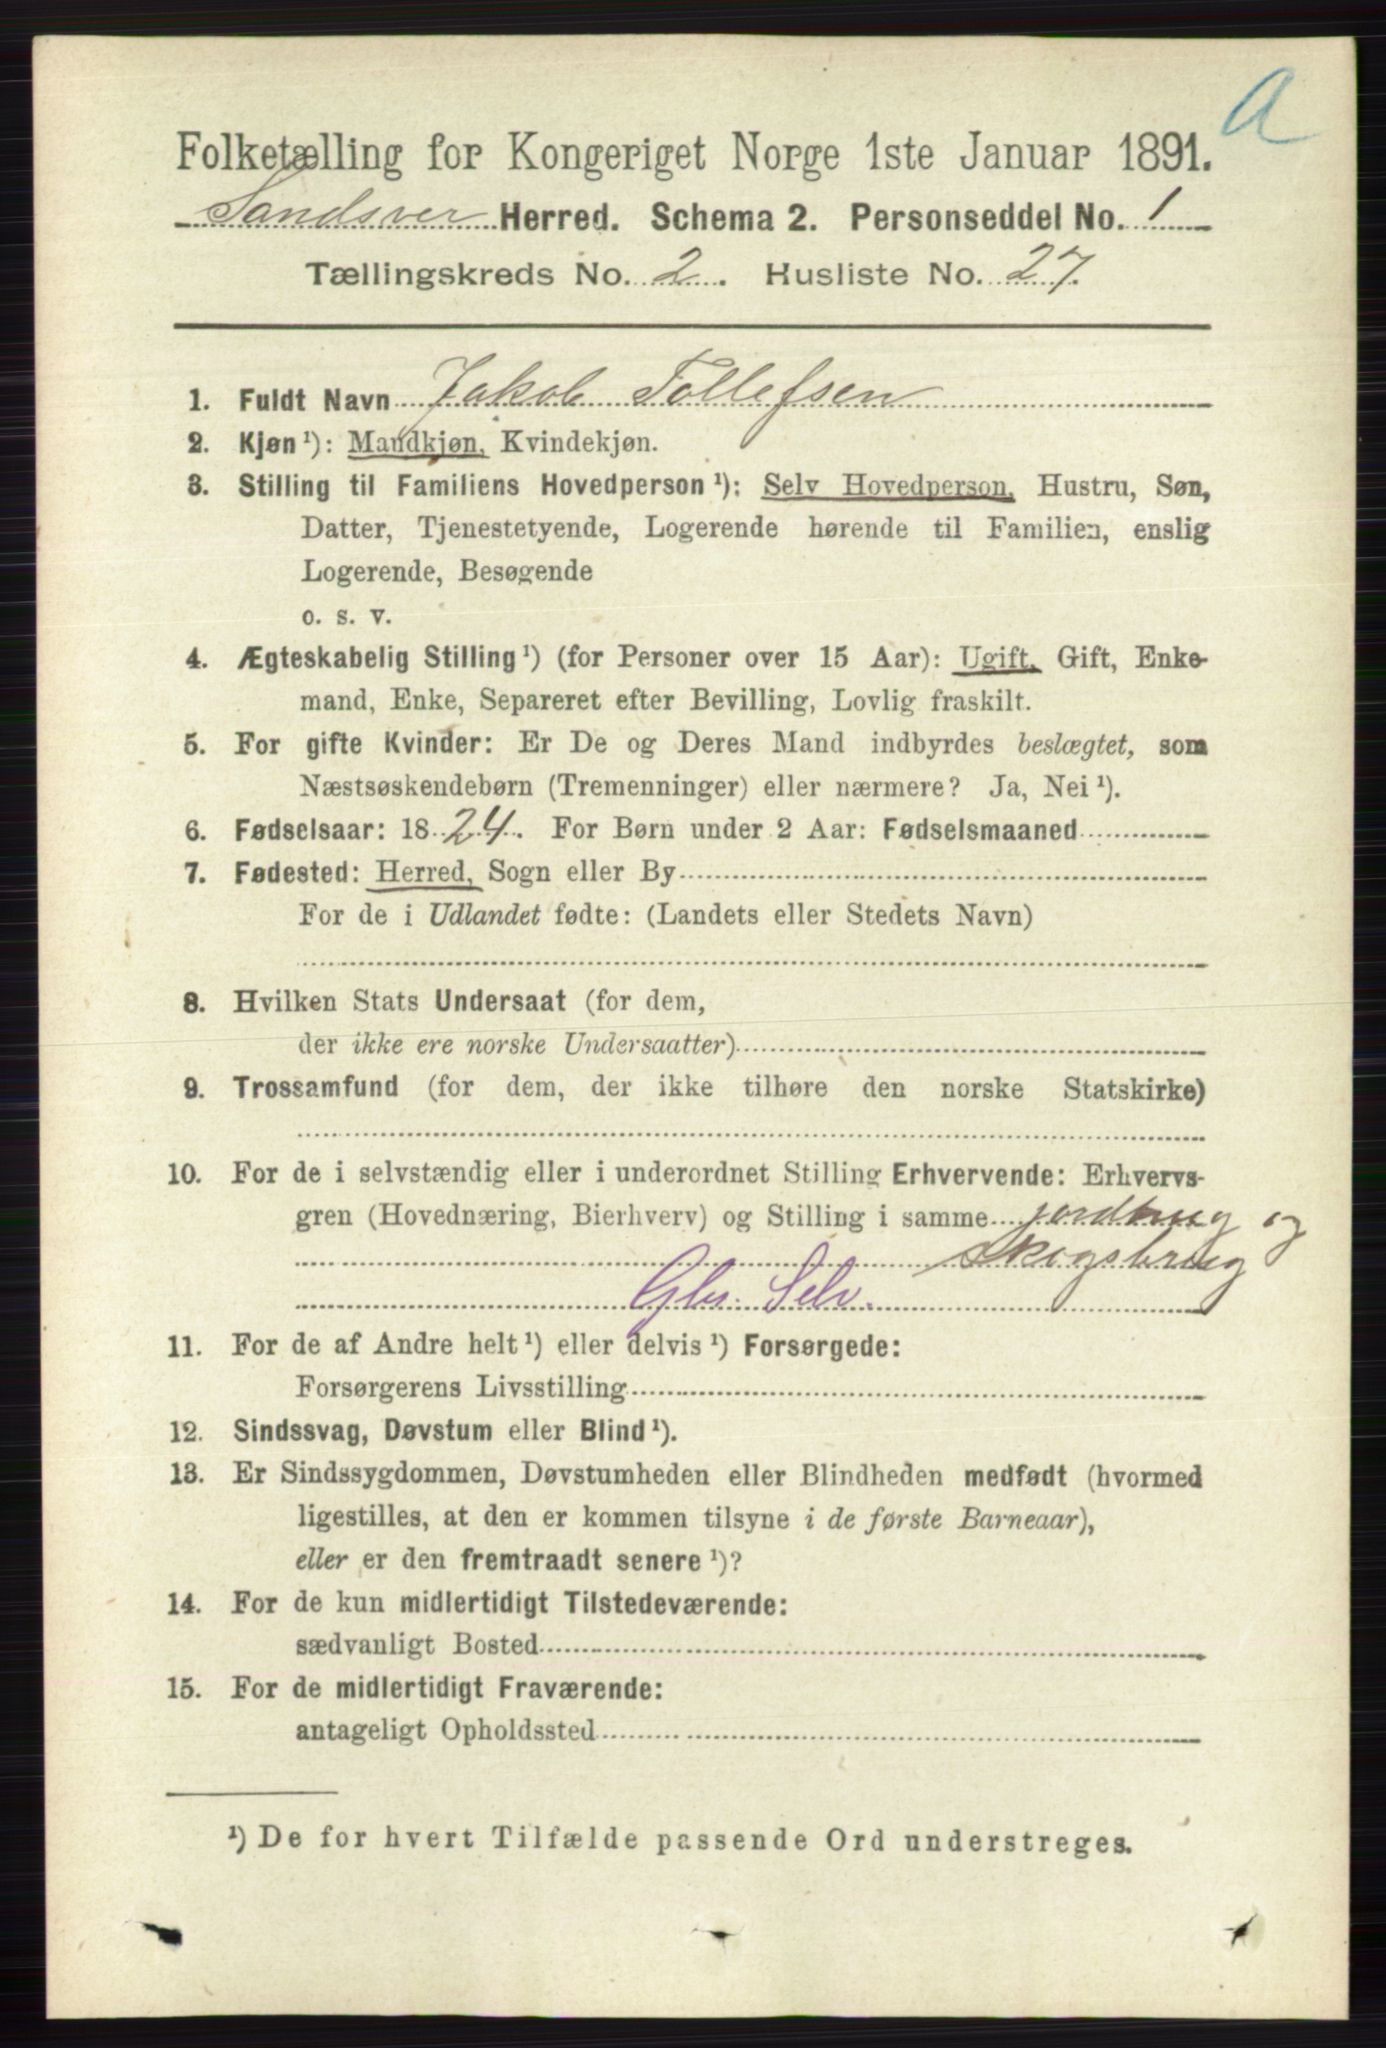 A
Folketælling for Kongeriget Norge 1ste Januar 1891.
Sandsver Herred. Schema 2. Personseddel No. 1
Tællingskreds No. 2. Husliste No. 27.
1. Fuldt Navn Jakob Tollefsen
2. Kjøn ¹): Mandkjøn, Kvindekjøn.
3. Stilling til Familiens Hovedperson ¹): Selv Hovedperson, Hustru, Søn,
Datter, Tjenestetyende, Logerende hørende til Familien, enslig
Logerende, Besøgende
o. s. v.
4. Ægteskabelig Stilling ¹) (for Personer over 15 Aar): Ugift, Gift, Enke-
mand, Enke, Separeret efter Bevilling, Lovlig fraskilt.
5. For gifte Kvinder: Er De og Deres Mand indbyrdes beslægtet, som
Næstsøskendebørn (Tremenninger) eller nærmere? Ja, Nei ¹).
6. Fødselsaar: 1824. For Børn under 2 Aar: Fødselsmaaned
7. Fødested: Herred, Sogn eller By
For de i Udlandet fødte: (Landets eller Stedets Navn)
8. Hvilken Stats Undersaat (for dem,
der ikke ere norske Undersaatter)
9. Trossamfund (for dem, der ikke tilhøre den norske Statskirke)
10. For de i selvstændig eller i underordnet Stilling Erhvervende: Erhvervs-
gren (Hovednæring, Bierhverv) og Stilling i samme jordbrug og
Skogsbrug
Gbr. Selv.
11. For de af Andre helt ¹) eller delvis ¹) Forsørgede:
Forsørgerens Livsstilling
12. Sindssvag, Døvstum eller Blind ¹).
13. Er Sindssygdommen, Døvstumheden eller Blindheden medfødt (hvormed
ligestilles, at den er kommen tilsyne i de første Barneaar),
eller er den fremtraadt senere ¹)?
14. For de kun midlertidigt Tilstedeværende:
sædvanligt Bosted
15. For de midlertidigt Fraværende:
antageligt Opholdssted
¹) De for hvert Tilfælde passende Ord understreges.